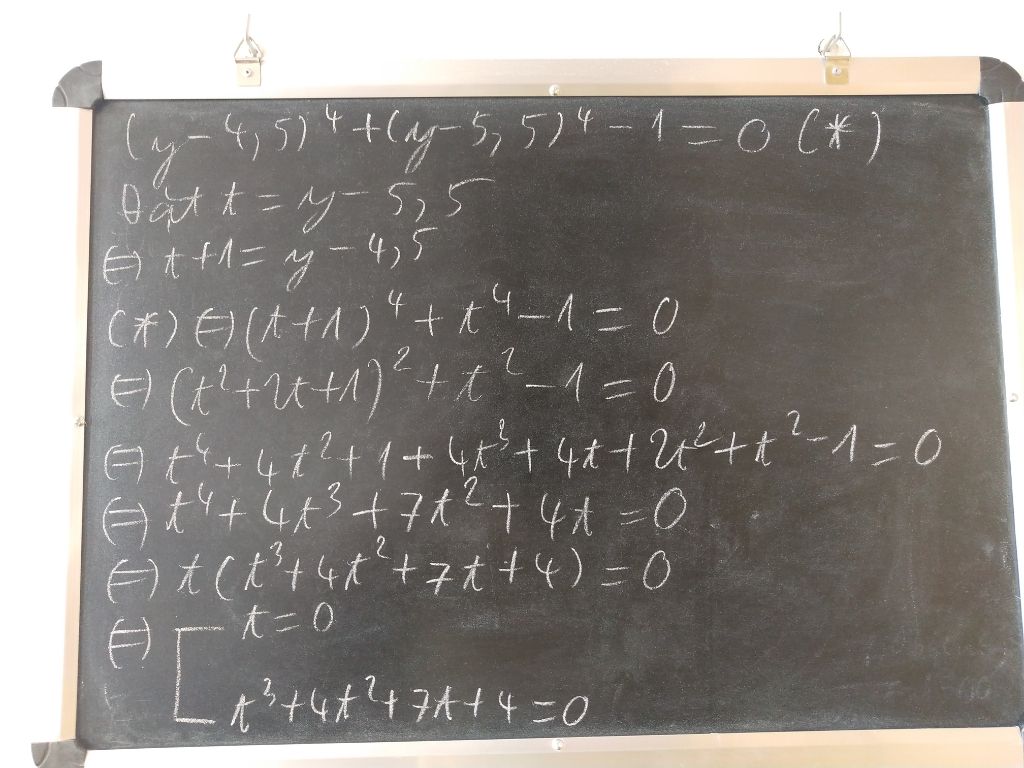 (y-4,5)⁴+(y-5,5)⁴-1=0 (*)
Đặt t=y-5,5
⇔ t+1=y-4,5
(*)⇔(t+1)⁴+t⁴-1=0
⇔ (t²+2t+1)²+t²-1=0
⇔ t⁴+4t²+1+4t³+4t+2t²+t²-1=0
⇔ t⁴+4t³+7t²+4t=0
⇔ t(t³+4t²+7t+4)=0
⇔ [ t=0
t³+4t²+7t+4=0